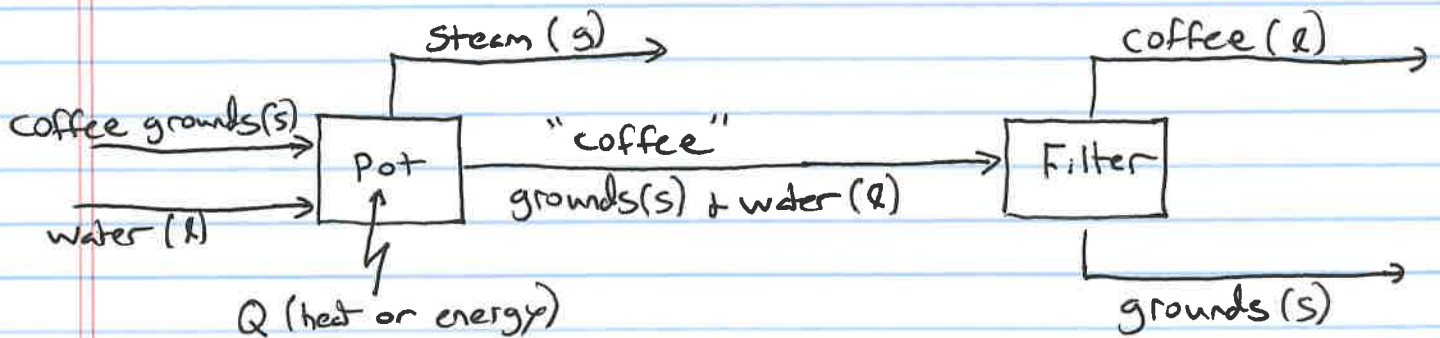 Steam (g)
coffee (l)
coffee grounds(s)
Pot
"coffee"
Filter
grounds(s) + water (l)
water (l)
Q (heat or energy)
grounds (s)